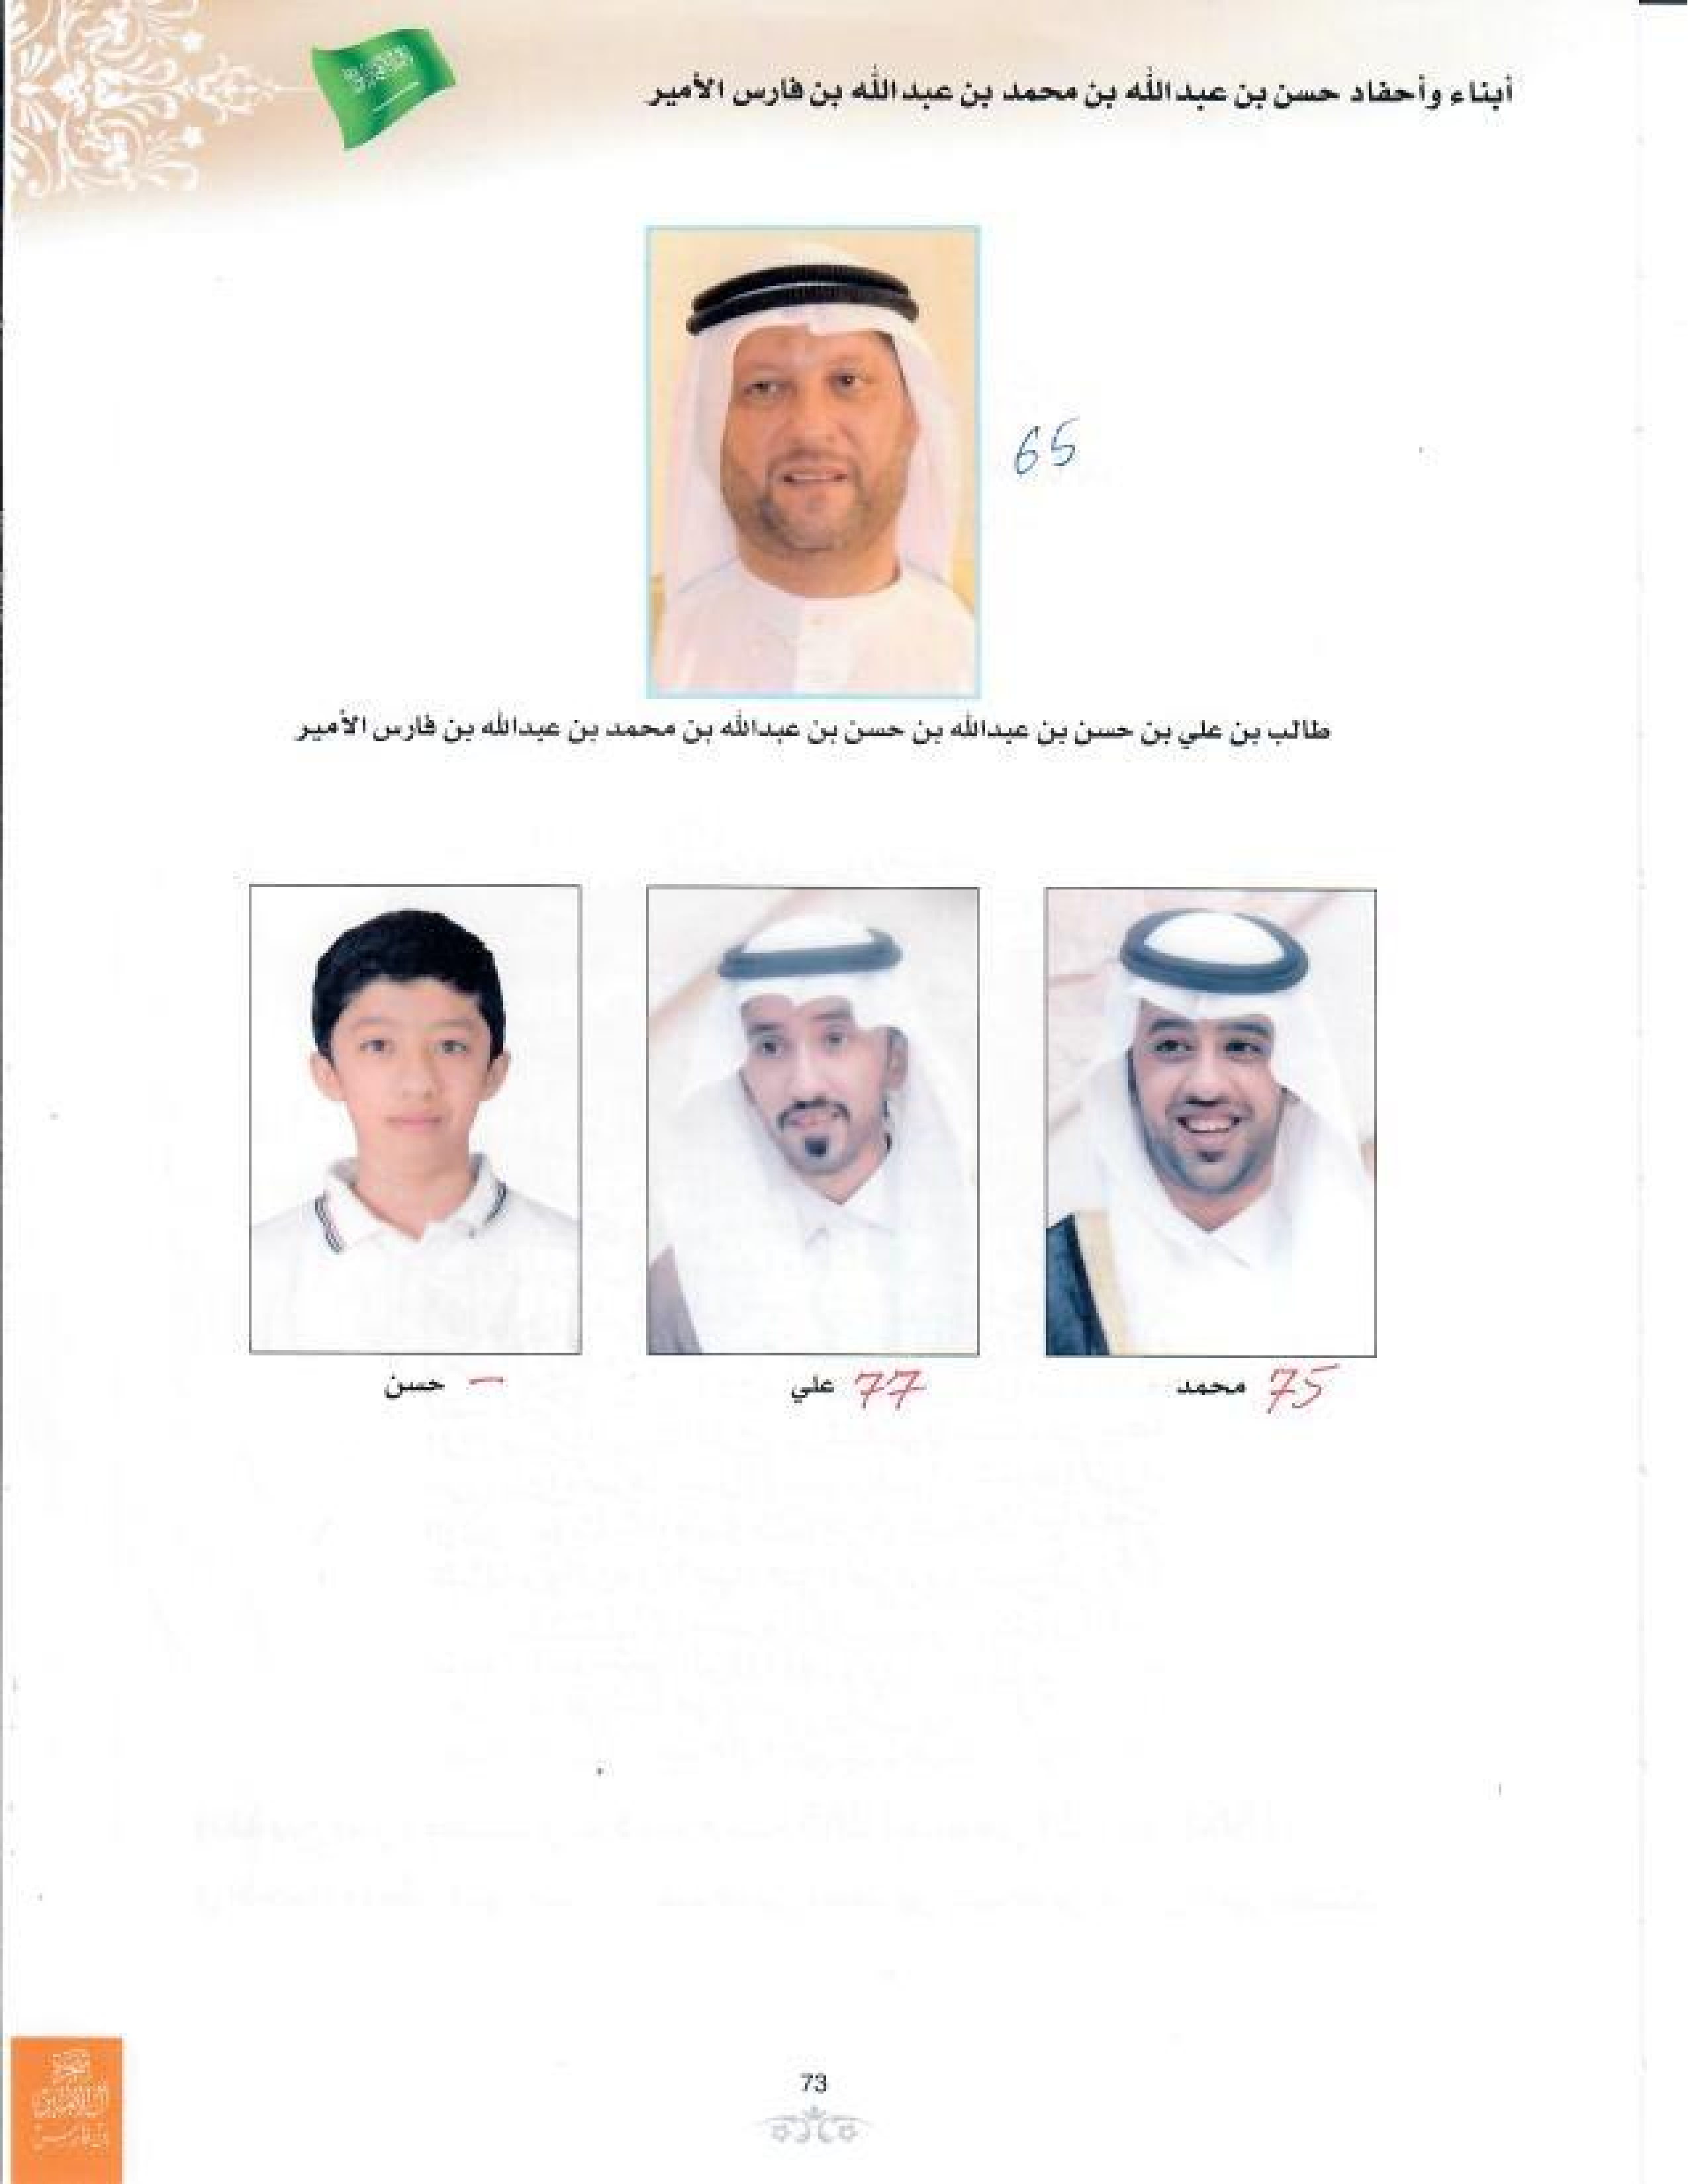 أبناء وأحفاد حسن بن عبدالله بن محمد بن عبدالله بن فارس الأمير
65
طالب بن علي بن حسن بن عبدالله بن حسن بن عبدالله بن محمد بن عبدالله بن فارس الأمير
75 محمد
77 علي
– حسن
73